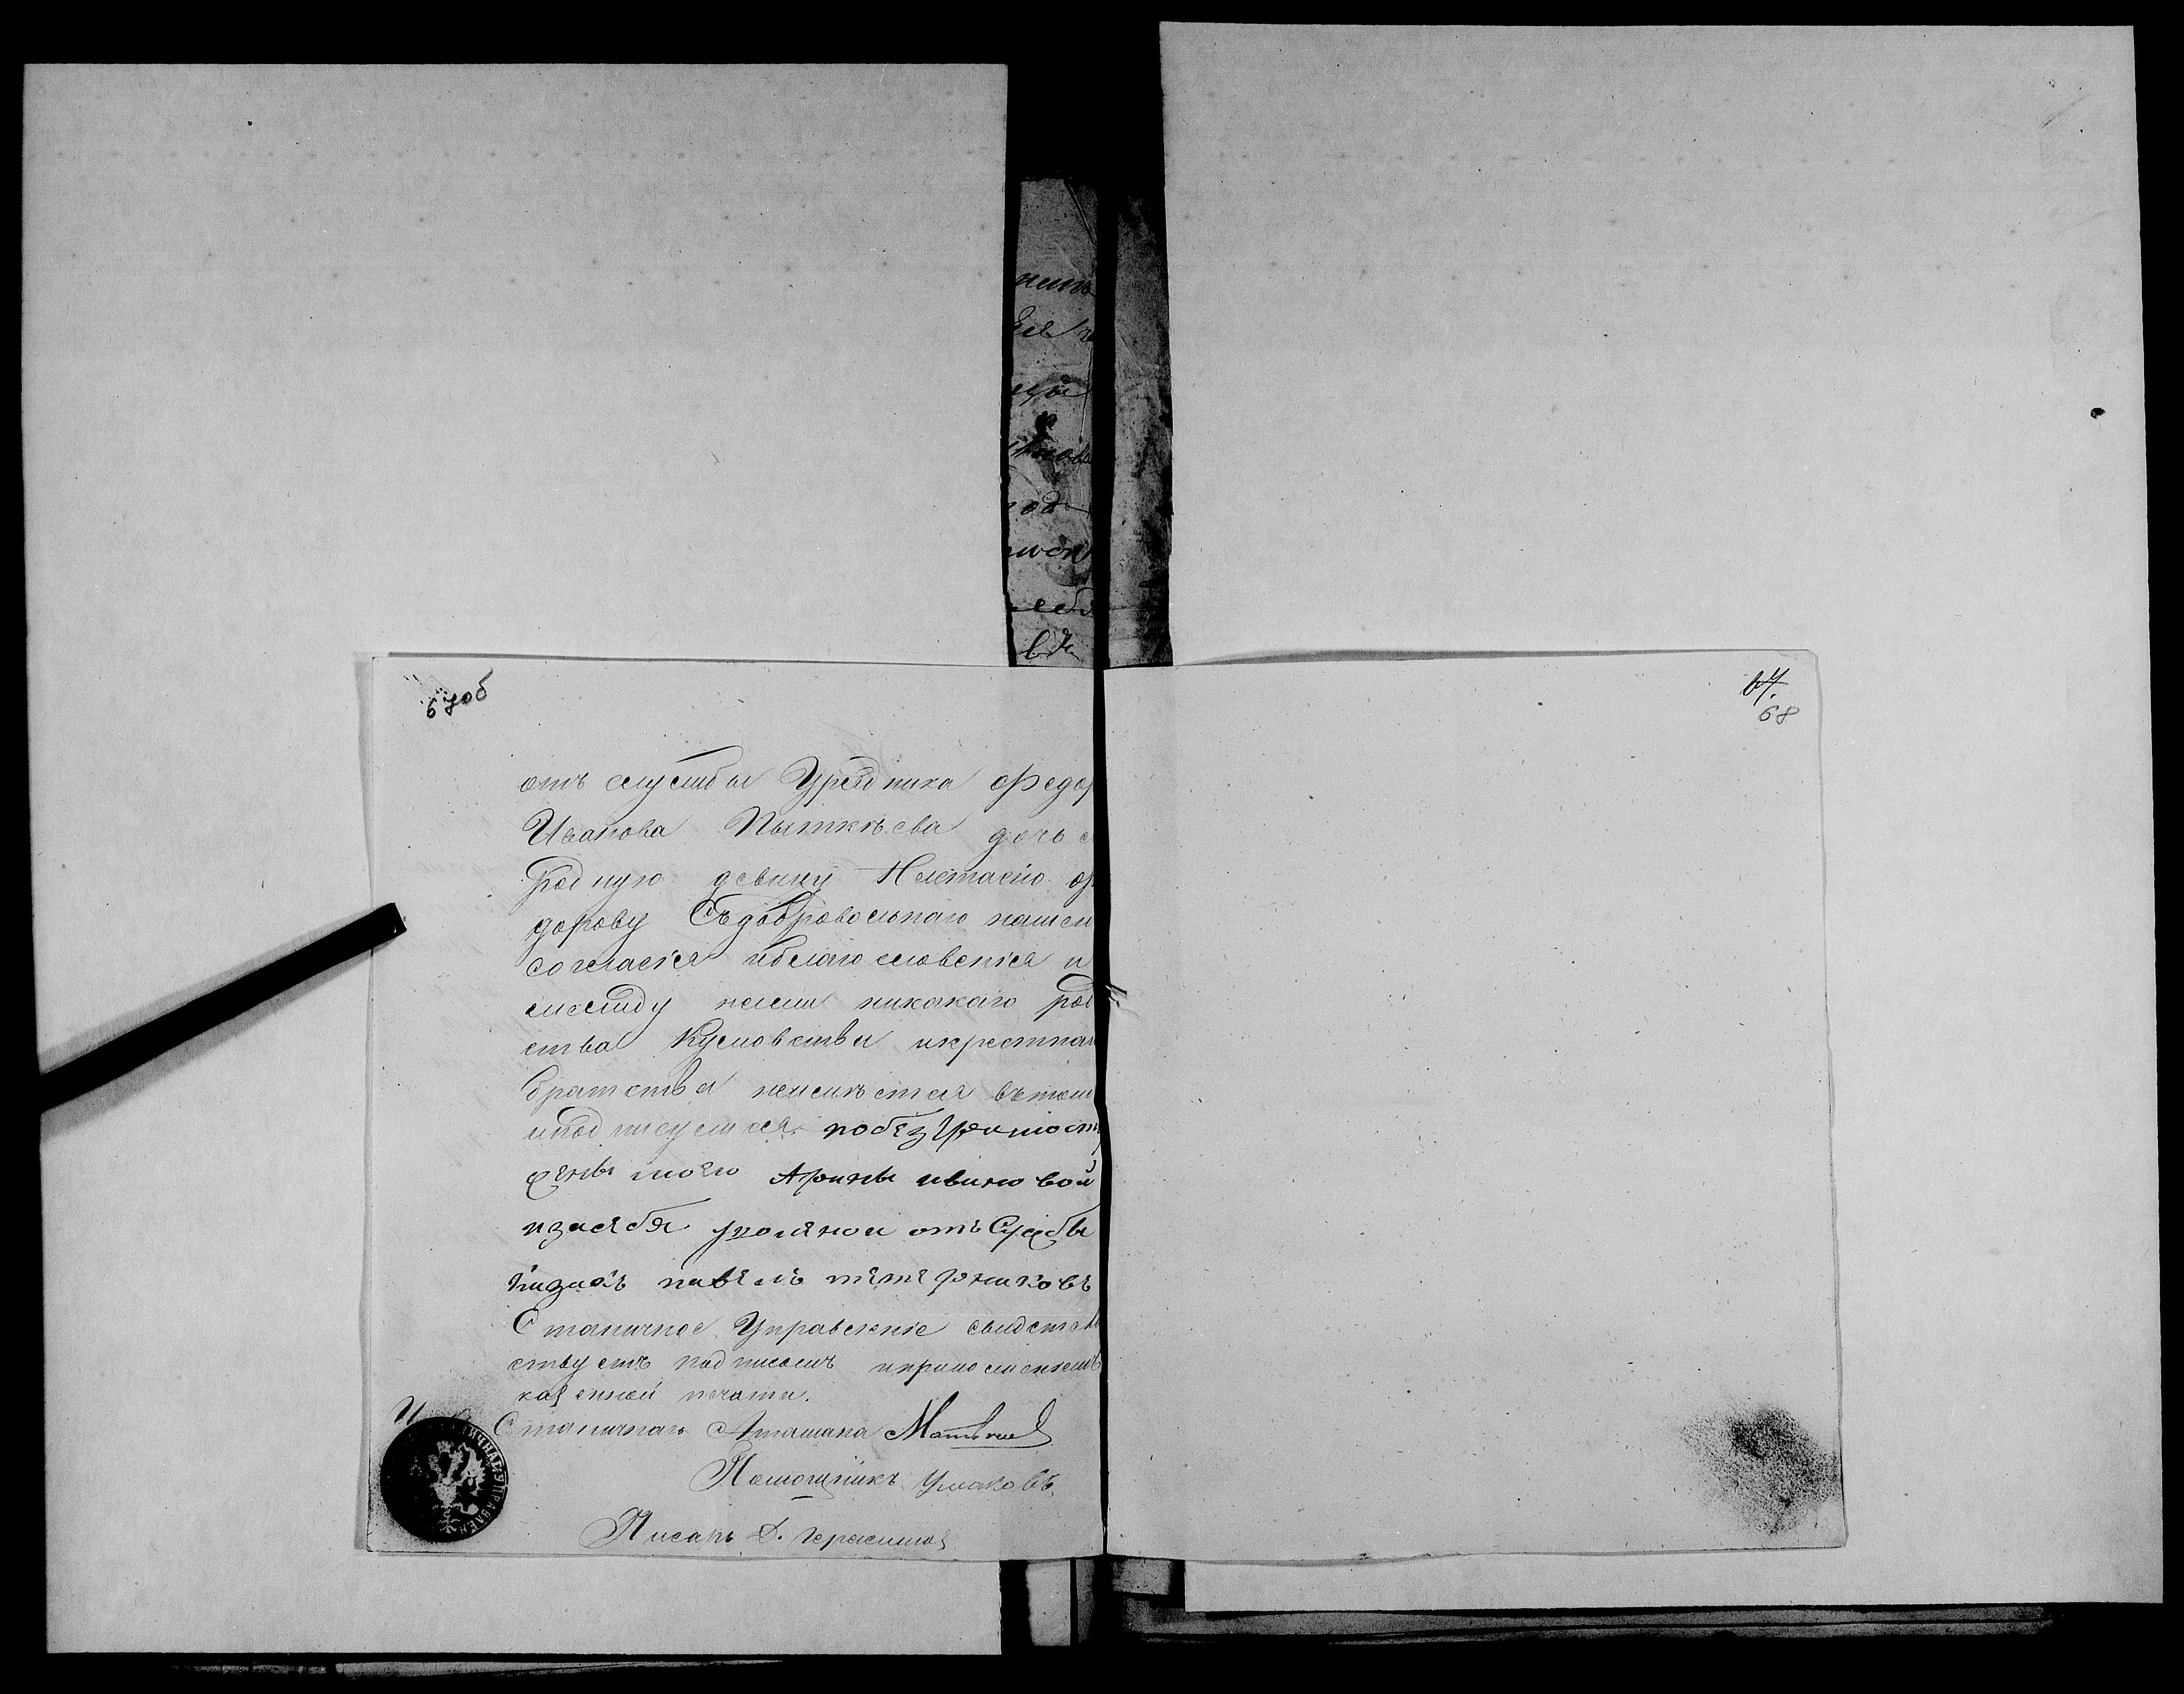 67об
67.
68
отъ службы Урядника Федор
Иванова Пыткѣева дочь
родную девицу Настасію
дорову Съ добровольнаго нашего
согласія иблагословенія и
между нами никакаго род
ства Кумовства икрестнаго
братства неимѣется вътом
иподписуемся побезграмост
жены моею Арины ивановой
изасебя уволеной отъ Сужбы
казакъ павелъ тетерниковъ
Станичное Управленіе свидетель
ствуетъ подписомъ иприложеніемъ
казенной печати.
Станичнаго Атамана
Помощникъ Ушаковъ
Писарь Ф. Герасимов